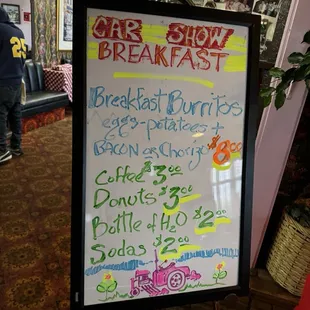 CAR SHOW
BREAKFAST
25
Breakfast Burritos
eggs-potatoes +
BACON or Chorizo $8.00
Coffee $3.00
Donuts $3.00
Bottle of H2O $2.00
Sodas $2.00